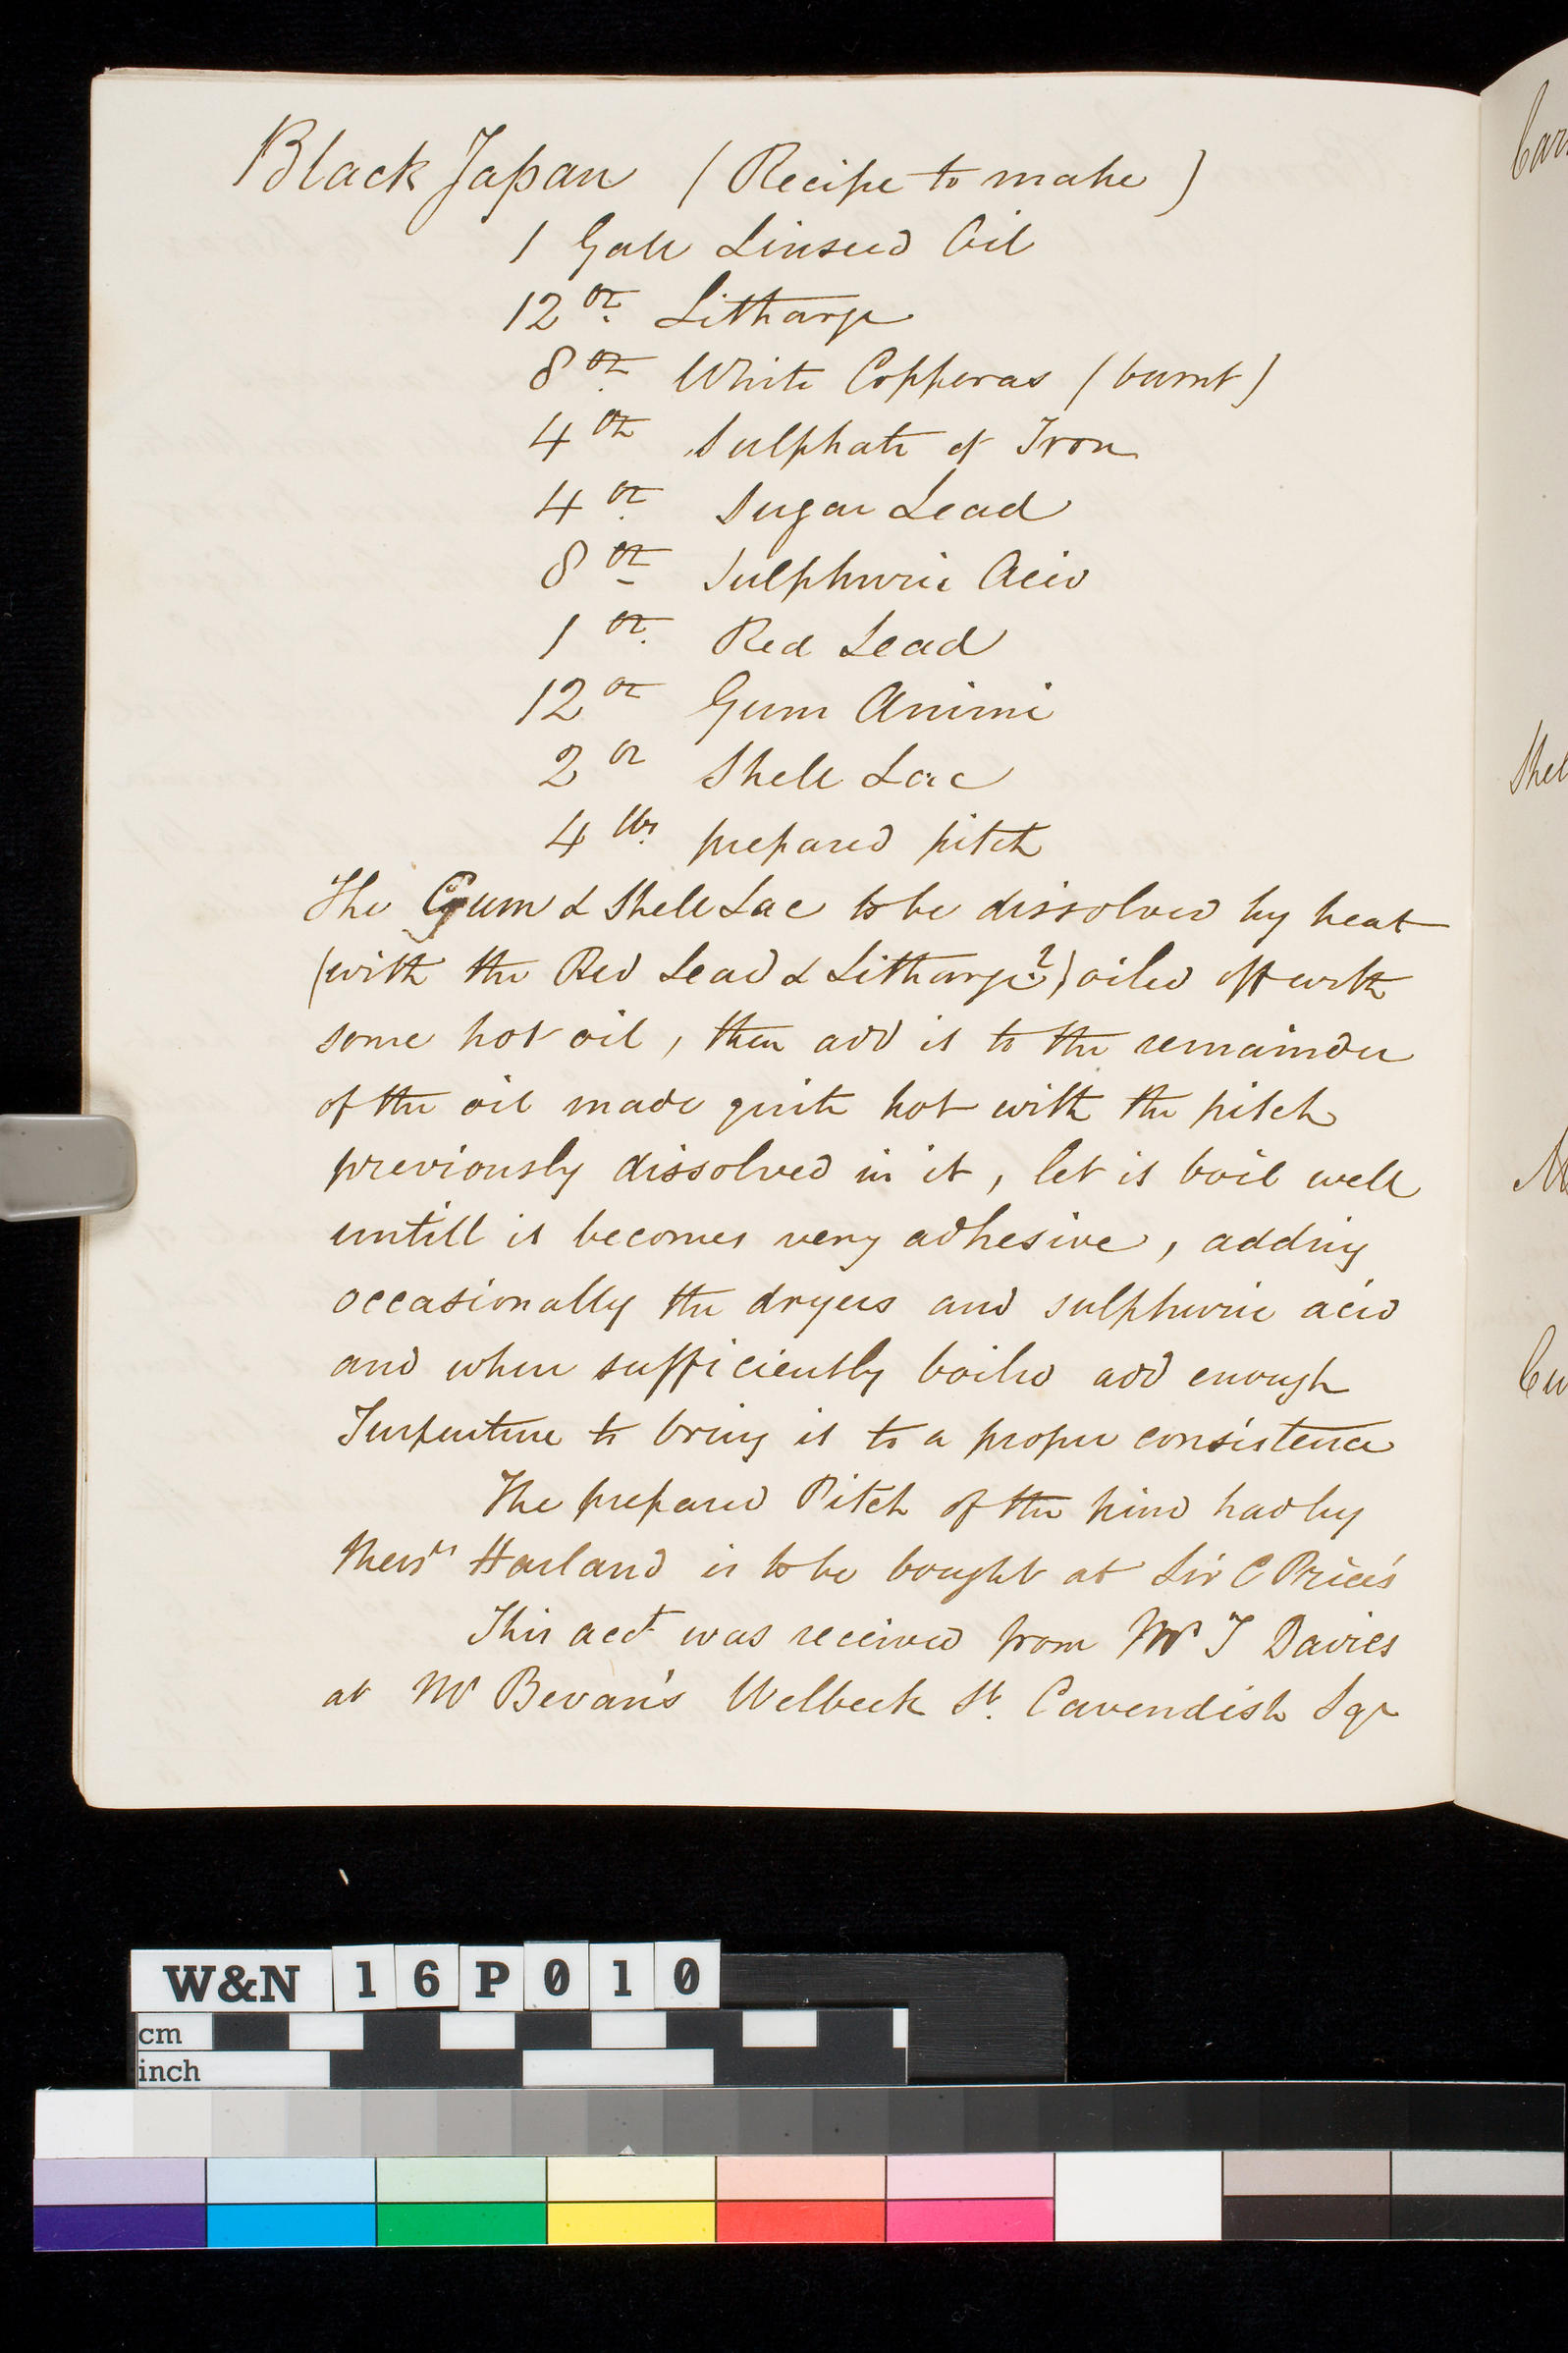 Black Japan (Recipe to make)
1 Gall Linseed Oil
12 oz. Litharge
8 oz. White Copperas (burnt)
4 oz Sulphate of Iron
4 oz. Sugar Lead
8 oz Sulphuric Acid
1 oz. Red Lead
12 oz Gum Animi
2 oz Shell Lac
4 lbs. prepared pitch
The Gum & Shell Lac to be dissolved by heat
(with the Red Lead & Litharge?) oiled off with
some hot oil, then add it to the remainder
of the oil made quite hot with the pitch
previously dissolved in it, let it boil well
untill it becomes very adhesive, adding
occasionally the dryers and sulphuric acid
and when sufficiently boiled add enough
Turpentine to bring it to a proper consistence
The prepared Pitch of the kind had by
Messrs Harland is to be bought at Sir C Price's
This acct was received from Mr T Davies
at Mr Bevan's Welbeck St. Cavendish Sqr
Shel
W&N 16P010
cm
inch